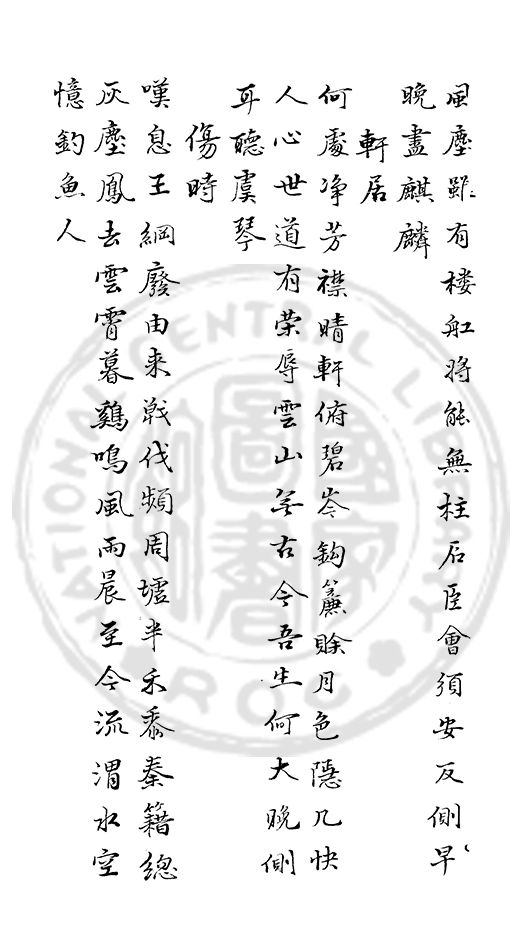 風塵雖有楼舡將能無柱石臣會須安反側早
晚畫麒麟
軒居
何處净芳襟晴軒俯碧岑鈎簾賒月色隱几快
人心世道有荣辱雲山无古今吾生何大晚側
耳聽虞琴
傷時
嘆息王綱廢由来戰伐頻周墟半禾黍秦籍總
灰塵鳳去雲霄暮鷄鳴風雨晨至今流渭水空
憶釣魚人
NATIONAL CENTRAL LIBRARY
R.O.C.
國家圖書